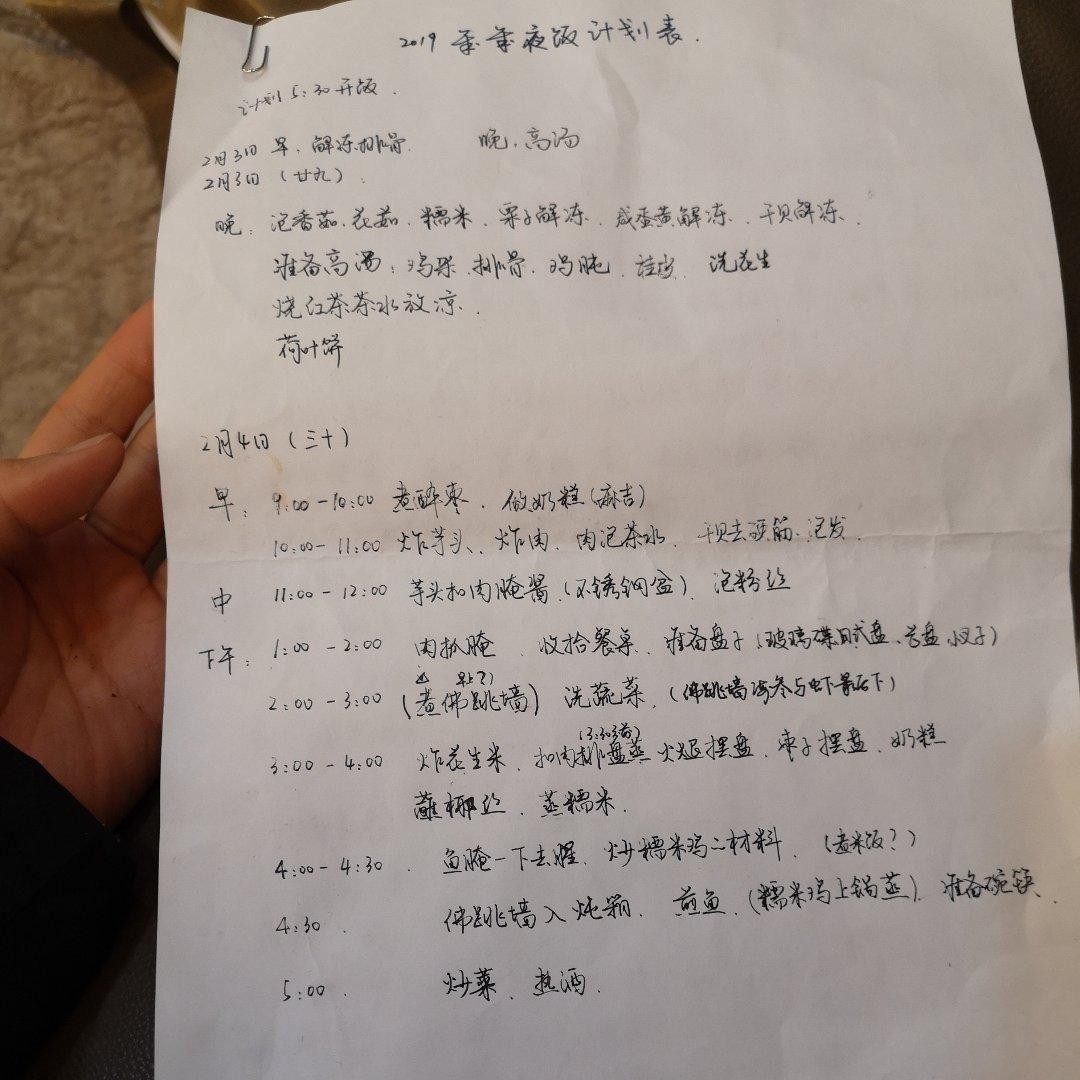 2019年年夜饭计划表.
计划5:30开饭.
2月3日 早、解冻排骨. 晚、高汤
2月3日(廿九).
晚: 泡香菇、花菇、糯米、栗子解冻、咸蛋黄解冻、干贝解冻.
准备高汤:鸡架、排骨、鸡肫、洗花生
烧红茶茶水放凉.
荷叶饼
2月4日(三十)
早: 9:00-10:00 煮醉枣、做奶糕(麻吉)
10:00-11:00 炸芋头、炸肉、肉泡茶水、干贝去硬筋、泡发.
中 11:00-12:00 芋头扣肉腌酱、(不锈钢盆)、泡粉丝
下午: 1:00-2:00 肉扒腌 收拾餐桌、准备盘子(玻璃碟、日式盘、长盘、叉子)
早上?)
2:00-3:00 (煮佛跳墙) 洗蔬菜、(佛跳墙海参与虾最后下)
(3:30前)
3:00-4:00 炸花生米、扣肉排盘蒸 火腿摆盘、枣子摆盘、奶糕
蘸椰丝、蒸糯米.
4:00-4:30 . 鱼腌一下去腥、炒糯米鸡の材料、(煮米饭?)
4:30 . 佛跳墙入炖锅、煎鱼、(糯米鸡上锅蒸)、准备碗筷.
5:00 . 炒菜、热酒.